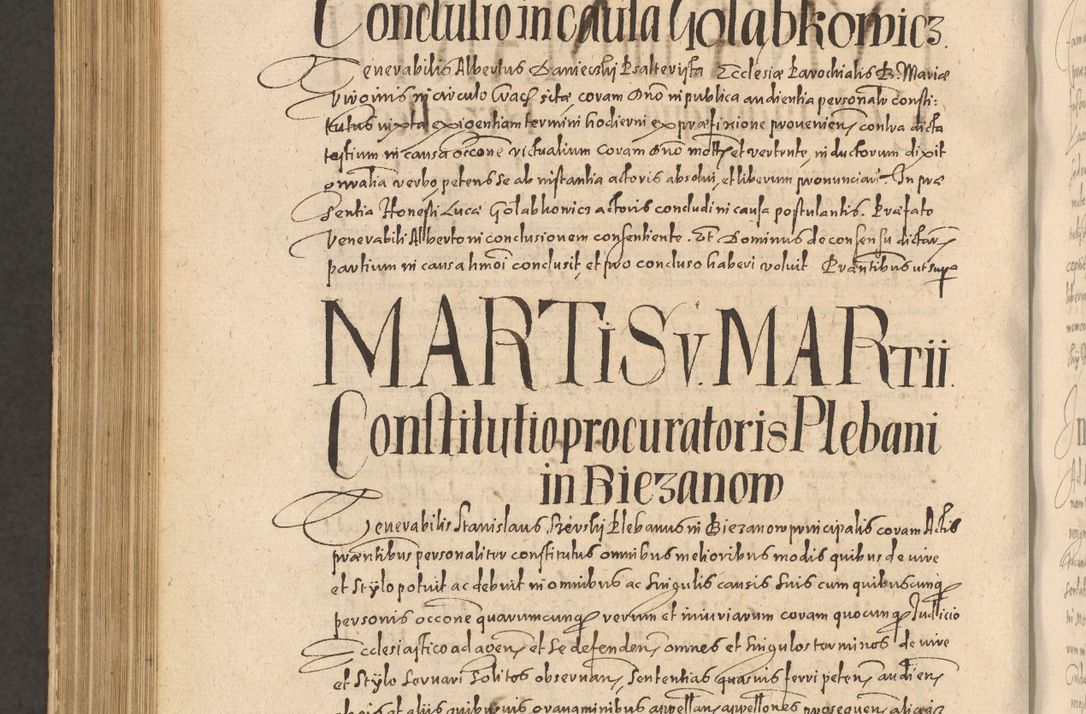 Conclusio in causa Golabkowicz.
Venerabilis Albertus Danieczky Psalterista Ecclesiæ Parochialis B. Mariæ
Virginis in circulo Crac sitæ coram Dno in publica audientia personalr consti:
tutus iuxta exigentiam termini hodierni ex præfixione provenien contra dicta
testium in causa occone victualium coram Dno mota et vertente inductorum dixit
gnralia verbo petens se ab instantia actoris absolvi, et liberum pronunciari. In præ
sentia Honesti Lucæ Golabkowicz actoris concludi in causa postulantis. Præfato
Venerabili Alberto in conclusionem consentiente. Et Dominus de consensu dictar
partium in causa hmoi conclusit et pro concluso haberi voluit Præntibus ut supra
MARTiS v. MARtii.
Constitutio procuratoris Plebani
in Biezanow
Venerabilis Stanislaus Plebanus in Biezanow principalis coram Actis
præntibus personaliter constitutus omnibus melioribus modis quibus de iure
et Stylo potuit ac debuit in omnibus ac Singulis causis Suis cum quibuscunq
personis occone quarumcunq rerum et iniuriarum coram quocunq Iudicio
Ecclesiastico ad agen et Se defenden omnes et Singulos terminos de iure
et Stylo Servari Solitos observan, Sententias quasvis ferri peten, audien,
ab eis et aliis quibusvis gravaminibus appellan, appellones prosequen,